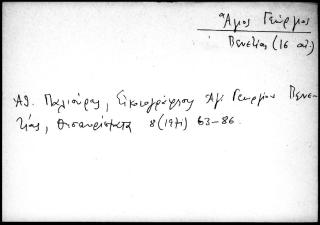 Ἅγιος Γεώργιος
Βενετίας (16 αἰ.)
Ἀθ. Παλιούρας, Εἰκονογράφησις Ἁγ. Γεωργίου Βενε-
τίας, Θησαυρίσματα 8 (1971) 63-86.